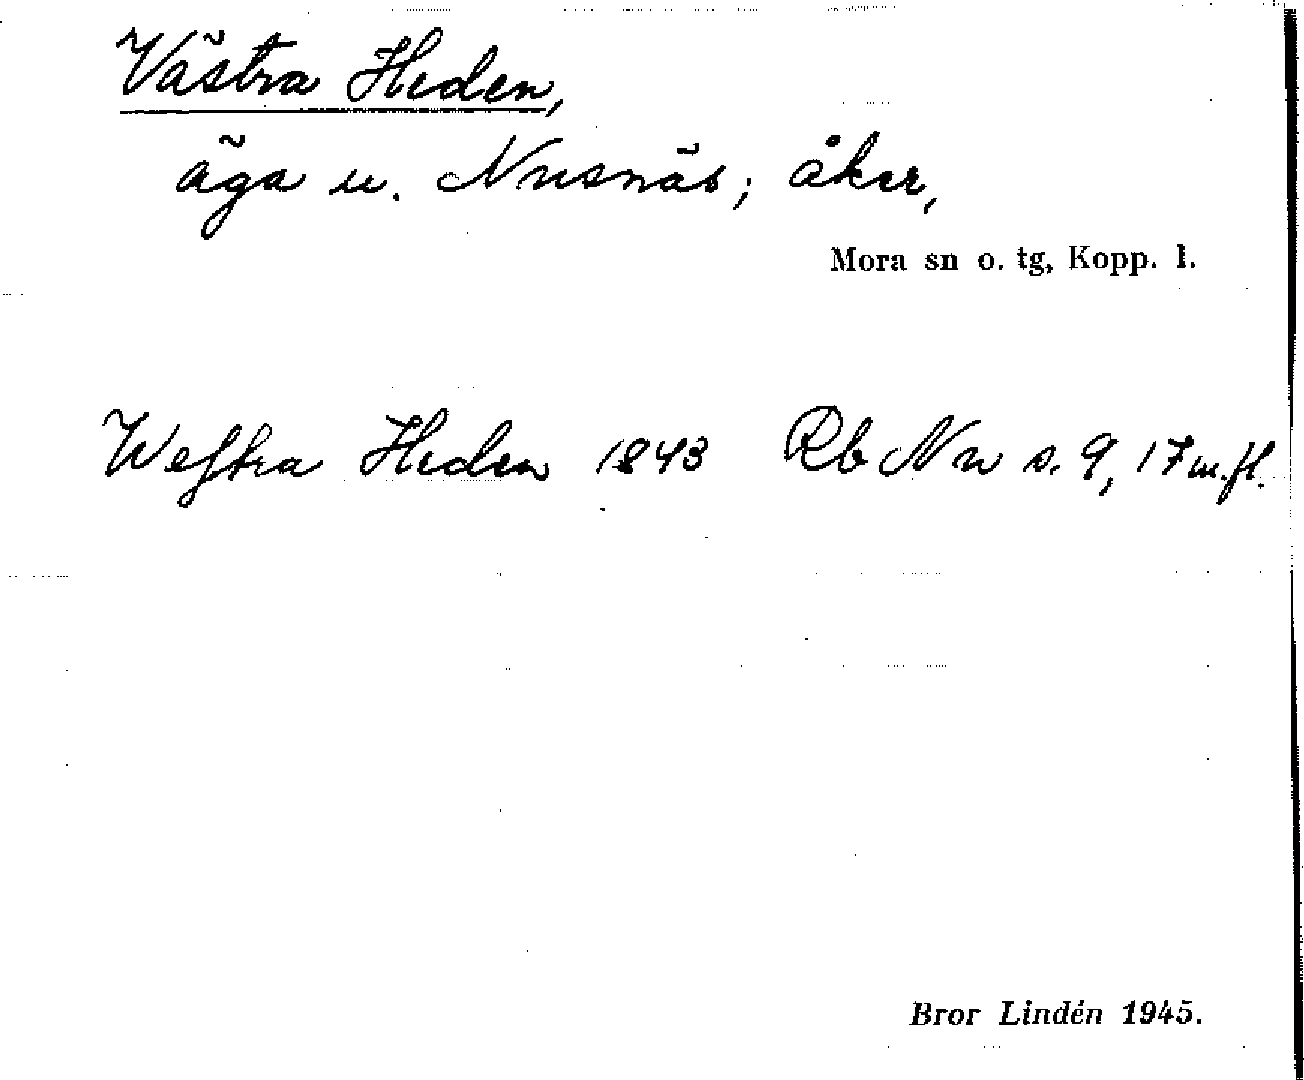 Västra Heden,
äga u. Nusnäs; åker,
Mora sn o. tg, Kopp. l.
Weſtra Heden 1843 Rb Nn s. 9, 17 m. fl.
Bror Lindén 1945.